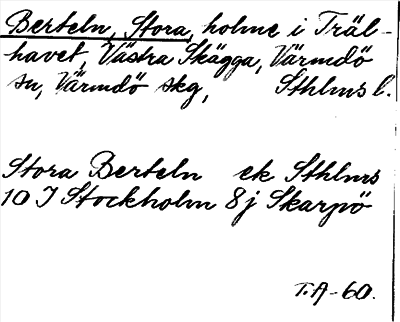 Berteln, Stora, holme i Träl-
havet, Västra Skägga, Värmdö
sn, Värmdö skg, Sthlms l.
Stora Berteln ek Sthlms
10 I Stockholm 8j Skarpö
T.A-60.